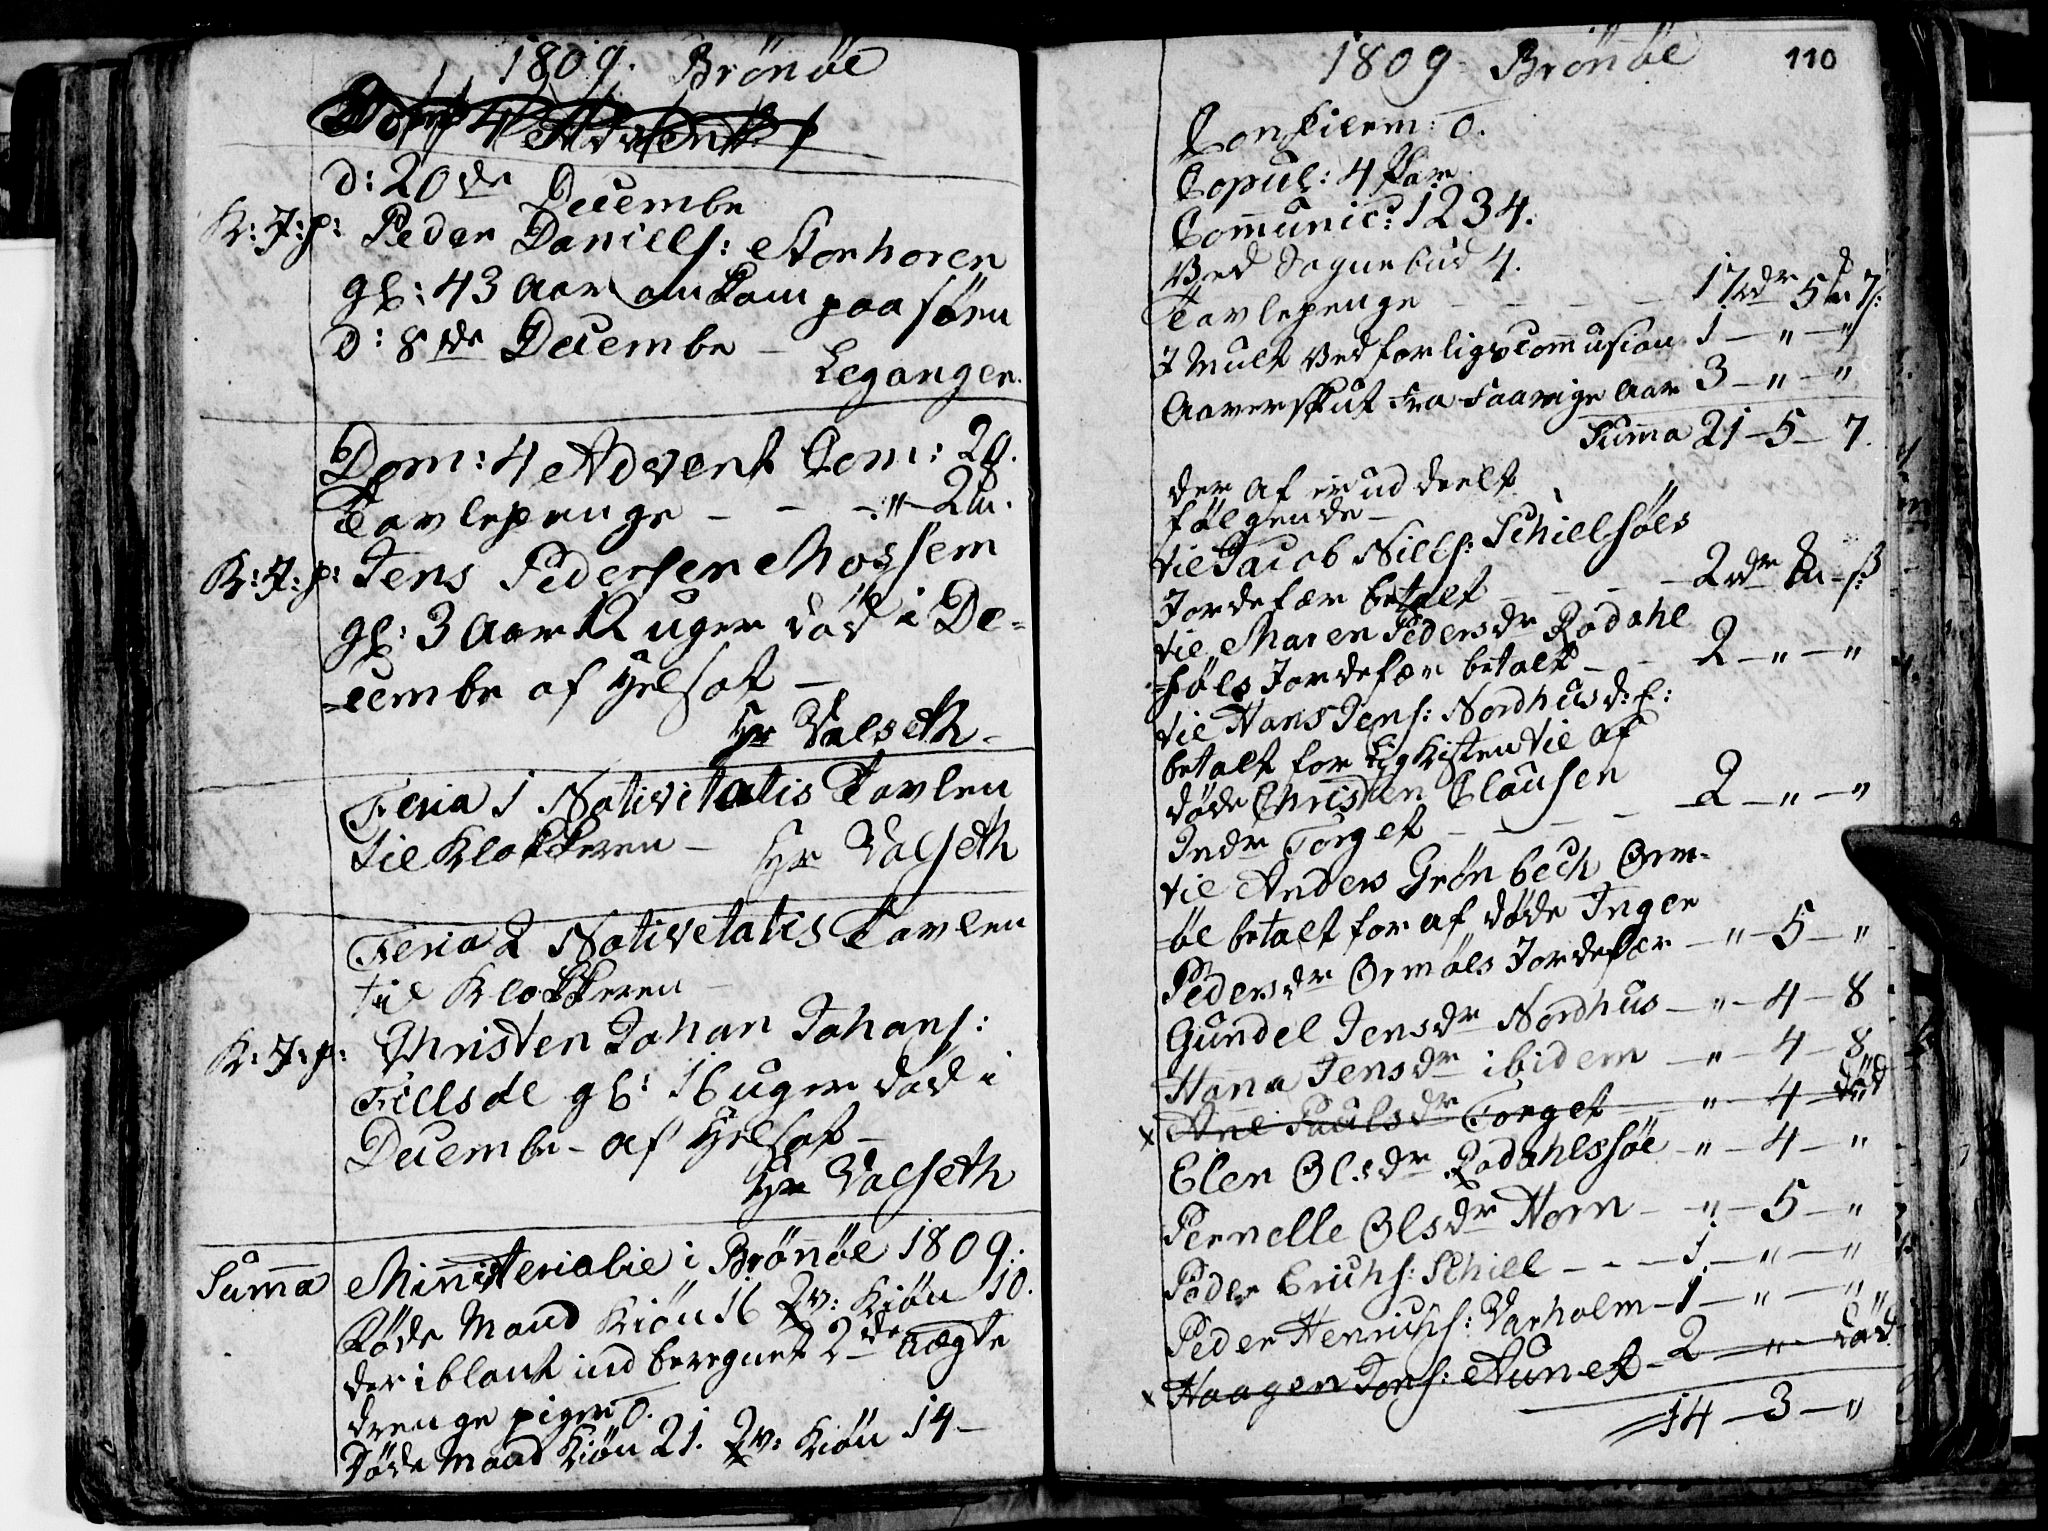 1809. Brönöe
Dom 4 Advent
d: 20de Decembr
K: J: p: Peder Daniels: Storhoren
gl: 43 Aar omkom paa söen
d: 8de Decembr –
Legangen.
Dom: 4 Advent Com: 29.
Tavlepenge – – – „ – 2
K: J: p: Jens Pedersen Mossem
gl: 3 Aar 12 uger död i De-
-cembr af Helsot –
Hr Valseth –
Feria 1 Nativitatis Tavlen
til Klokkeren –
Hr Valseth
Feria 2 Nativitatis Tavlen
til Klokkeren –
K: J: p: Christen Johan Johans:
Tillsdl gl: 16 uger död i
Decembr – af Helsot –
Hr Valseth
Summa Ministerialie i Brönöe 1809:
Föde Mand Kiön 16 Qv: Kiön 10.
der iblant indberegnet 2de uægte
drenge piger 0.
Döde Mand Kiön 21. Qv: Kiön 14 –
1809 – Brönöe
110
Confirm: 0.
Copul: 4 Par
Communic: 1234.
Ved Sognebud 4.
Tavlepenge – – – – 17 dr 5 7 s:
I Mult Ved forligs Commission 1 – „ – „
Aaverskut fra Faarige Aar 3 – „ – „
Summa 21 – 5 – 7.
der af er ud deelt
fölgende –
til Jacob Nills: Schillsöes
Jordefær betalt – – – 2 dr
til Maren Pedersdr Rodahl
-söls Jordefær betalt – – 2 – „ – „
til Hans Jens: Nordhus
betalt for Ligkisten til af
döde Christen Clausen
Indr Torget – – – – 2 – „ – „
til Anders Grönbech Orm-
-öe betalt for af döde Inger
Pedersdr Ormöes Jordefær – „ – 5 – „
Gundel Jensdr Nordhus – „ – 4 – 8
Hanna Jensdr ibidem – „ – 4 – 8
x Ane Paulsdr Torget – „ – 4 – död
Elen Olsdr Rodahlssöe – „ – 4 – „
Pernelle Olsdr Horn – „ – 5 – „
Peder Erichs: Schill – – – 1 – „ – „
Peder Henrichs: Varholm – 1 – „ – „
x Haagen Jons: Aunet – 2 – „ – död
14 – 3 – „